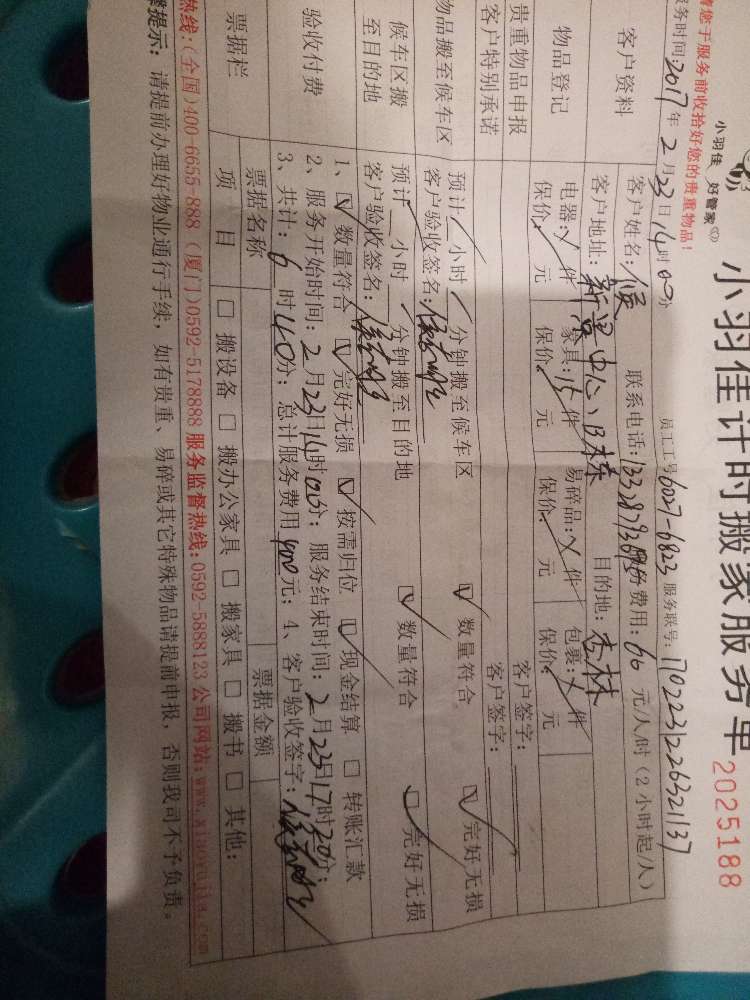 小羽佳 好管家
小羽佳计时搬家服务单 2025188
请您于服务前收拾好您的贵重物品！
员工工号6027-6823 服务联号：1702231226321137
服务时间：2017年2月23日14时00分
客户资料
客户姓名：候 联系电话： 费用：60元/人/时（2小时起/人）
客户地址： 目的地：杏林
物品登记
电器： 件 家具： 件 易碎品： 件 包裹： 件
保价 元 保价 元 保价 元 保价 元
贵重物品申报 客户签字：
客户特别承诺 客户签字：
物品搬至候车区
预计 小时 分钟搬至候车区 数量符合 完好无损
客户验收签名：
候车区搬至目的地
预计 小时 分钟搬至目的地 数量符合 完好无损
客户验收签名：
验收付费
1、数量符合 完好无损 按需归位 现金结算 转账汇款
2、服务开始时间：2月23日14时00分；服务结束时间：2月23日17时20分；
3、共计：6时40分；总计服务费用400元；4、客户验收签字：
票据栏
票据名称 票据金额
项目 搬设备 搬办公家具 搬家具 搬书 其他：
热线：(全国)400-6655-888 (厦门)0592-5178888 服务监督热线：0592-5888123 公司网站：www.xiaoyujia.com
提示：请提前办理好物业通行手续，如有贵重、易碎或其它特殊物品请提前申报，否则我司不予负责。